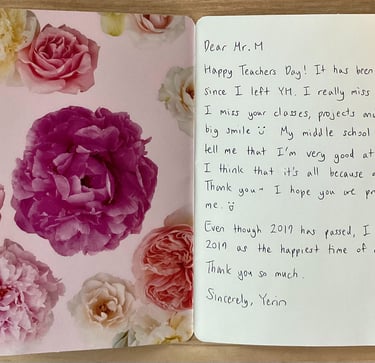 Dear Mr. M
Happy Teachers Day! It has been
since I left YM. I really miss
I miss your classes, projects and
big smile My middle school
tell me that I'm very good at
I think that it's all because
Thank you~ I hope you are
me.
Even though 2017 has passed, I
2017 as the happiest time of
Thank you so much.
Sincerely, Yerin